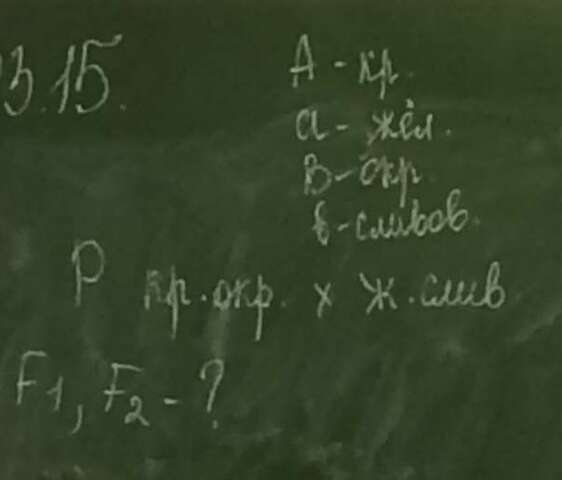 3.15.
А - кр.
а - жёл.
В - окр.
в - сливов.
Р кр. окр. х ж. слив
F1, F2 - ?